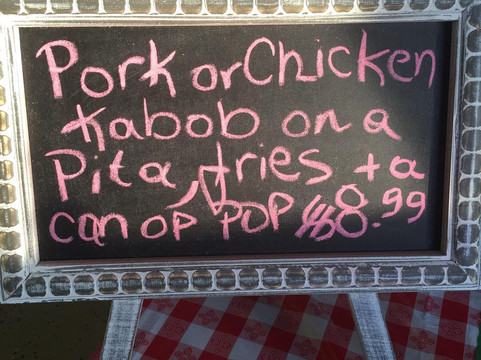 Pork or Chicken
Kabob on a
Pita, fries + a
can op POP $8.99